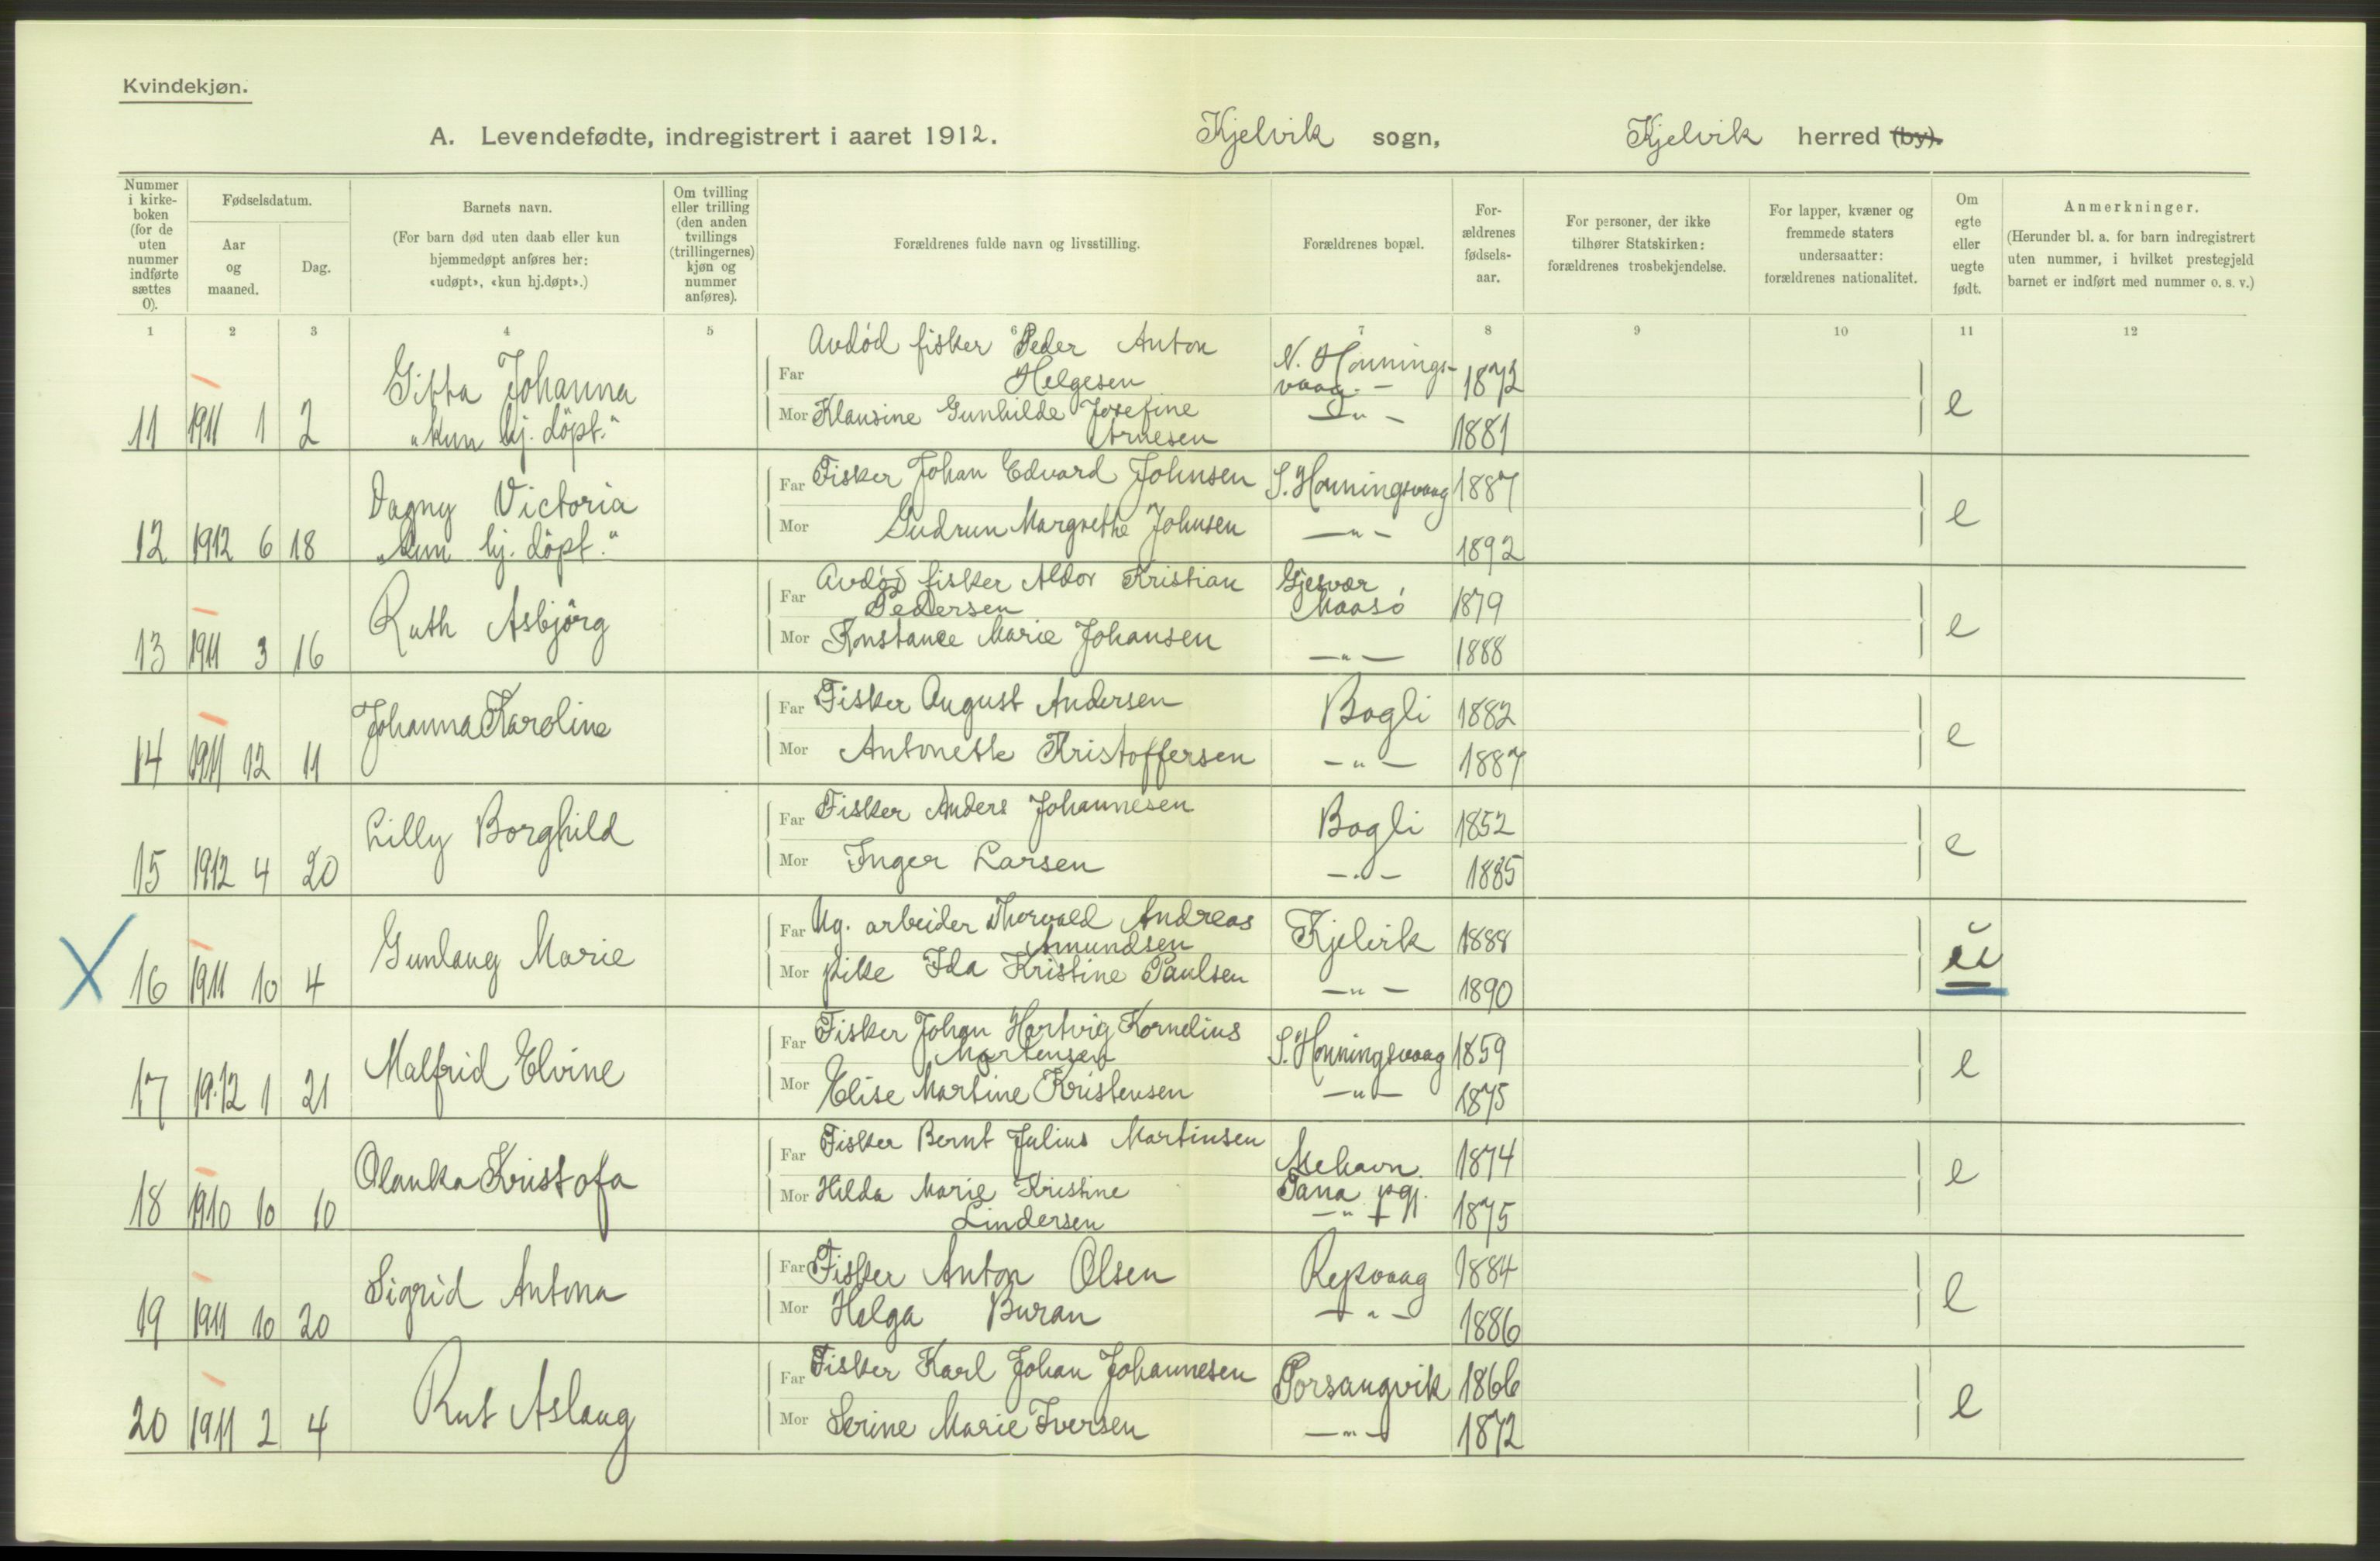 Kvindekjøn.
A. Levendefødte, indregistrert i aaret 1912. Kjelvik sogn, Kjelvik herred (by).
Nummer i kirke-boken (for de uten nummer indførte sættes 0).
Fødselsdatum.
Aar og maaned.
Dag.
Barnets navn.
(For barn død uten daab eller kun hjemmedøpt anføres her: «udøpt», «kun hj.døpt».)
Om tvilling eller trilling (den anden tvillings (trillingernes) kjøn og nummer anføres).
Forældrenes fulde navn og livsstilling.
Forældrenes bopæl.
For-ældrenes fødsels-aar.
For personer, der ikke tilhører Statskirken: forældrenes trosbekjendelse.
For lapper, kvæner og fremmede staters undersaatter: forældrenes nationalitet.
Om egte eller uegte født.
Anmerkninger.
(Herunder bl. a. for barn indregistrert uten nummer, i hvilket prestegjeld barnet er indført med nummer o. s. v.)
1 2 3 4 5 6 7 8 9 10 11 12
Avdød fisker Peder Anton
Far Helgesen N. Honnings-vaag. – 1872
Gitta Johanna
Mor Klausine Gunhilde Josefine – " – e
11 1911 1 2 "kun hj. døpt." Arnesen 1881
Far Fisker Johan Edvard Johnsen S. Honningsvaag 1887
Dagny Victoria
Mor Gudrun Margrethe Johnsen – " – e
12 1912 6 18 "kun hj. døpt." 1892
Avdød fisker Aldor Kristian Gjesvær
Far Pedersen Maasö 1879
Ruth Asbjörg
Mor Konstance Marie Johansen e
13 1911 3 16 – " – 1888
Far Fisker August Andersen Bogli 1882
Johanna Karoline e
14 1911 12 11 Mor Antonette Kristoffersen – " – 1887
Far Fisker Anders Johannesen Bogli 1852
Lilly Borghild e
15 1912 4 20 Mor Inger Larsen – " – 1885
Far Ug. arbeider Thorvald Andreas Kjelvik 1888
Amundsen
Gunlaug Marie
Mor pike Ida Kristine Paulsen
16 1911 10 4 – " – 1890
Far Fisker Johan Hartvig Kornelius S. Honningsvaag 1859
Mortensen
Malfrid Elvine e
17 1912 1 21 Mor Elise Martine Kristensen – " – 1875
Far Fisker Bernt Julius Martinsen Mehavn. 1874
Olanka Kristofa Tana pgj. e
Mor Hilda Marie Kristine
18 1910 10 10 Lindersen – " – 1875
Far Fisker Anton Olsen Repvaag 1884
Sigrid Antona e
19 1911 10 20 Mor Helga Buran – " – 1886
Far Fisker Karl Johan Johannesen Porsangvik 1866
Rut Aslaug e
20 1911 2 4 Mor Serine Marie Iversen – " – 1872